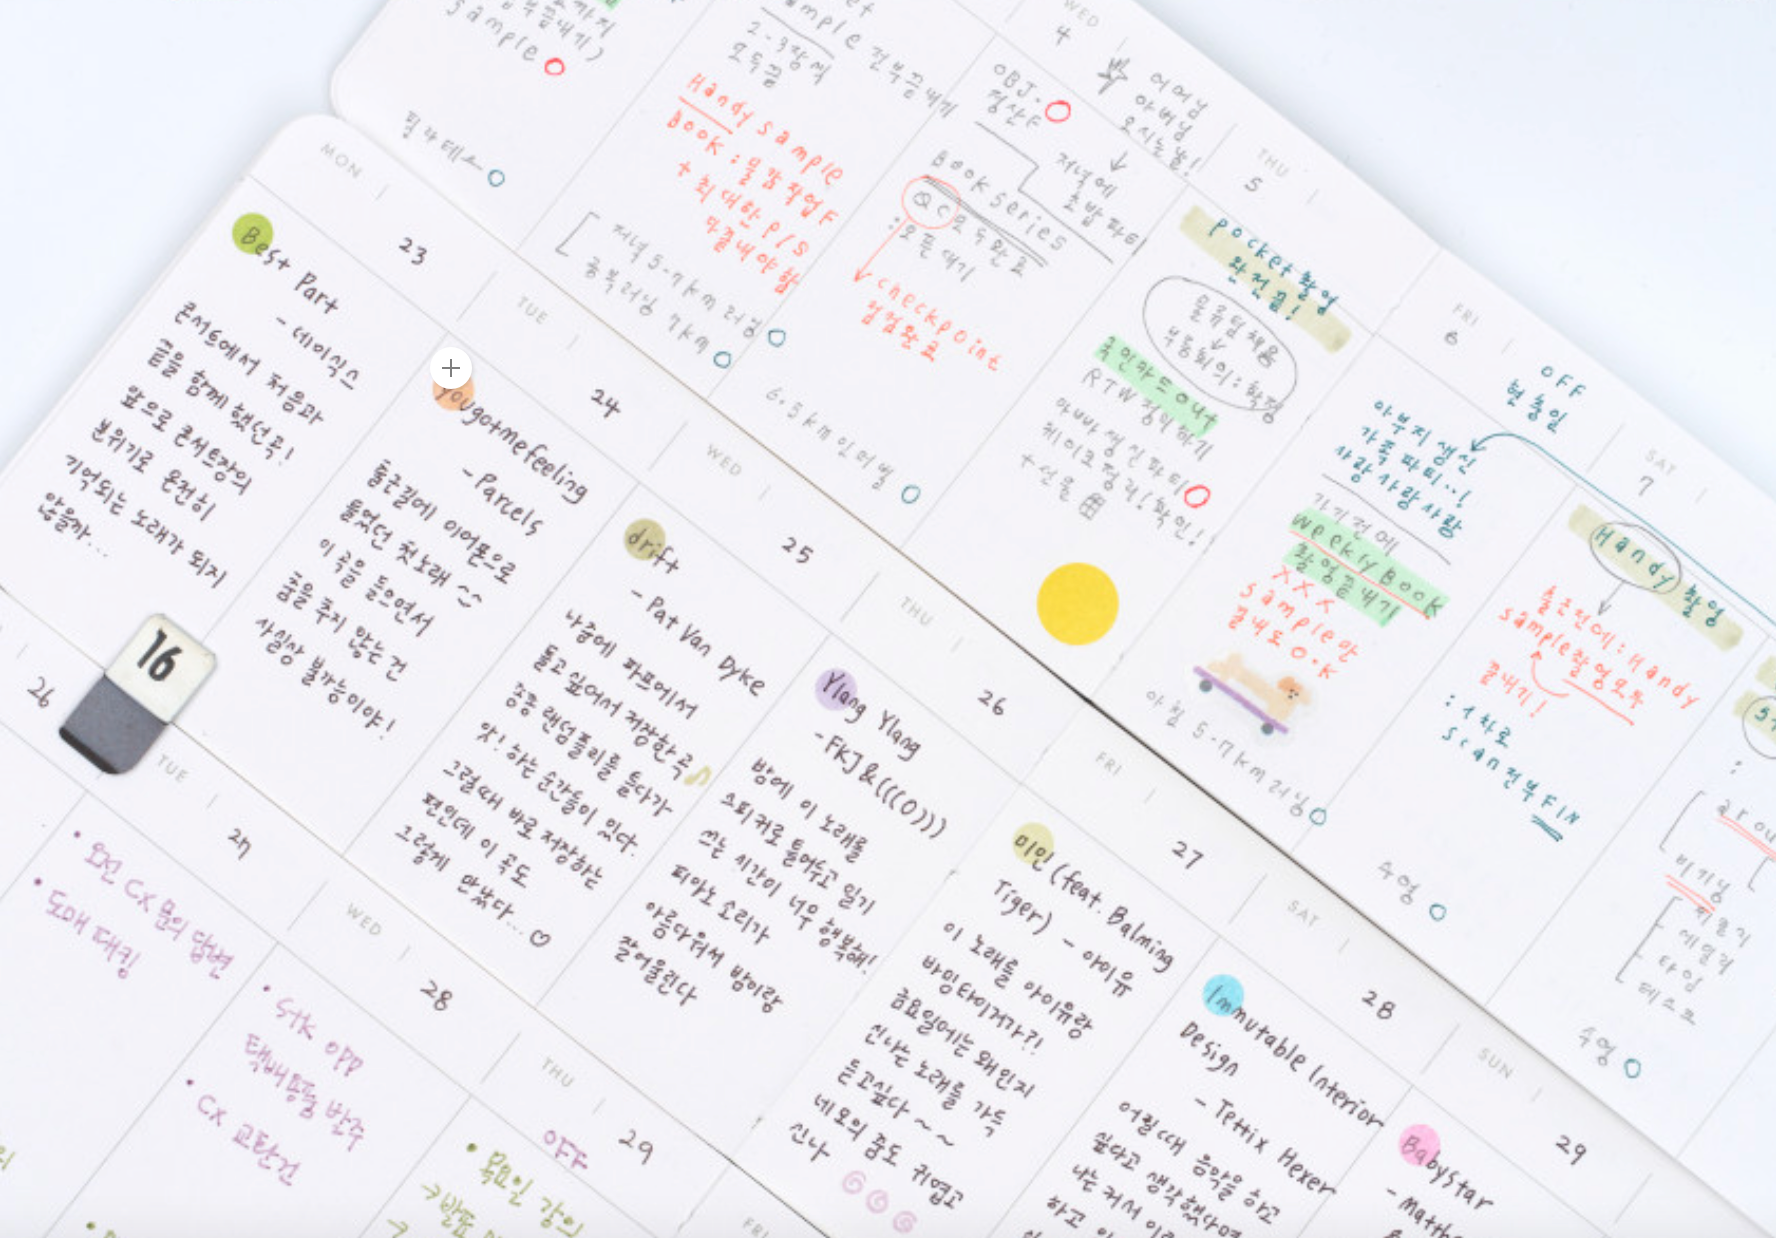 sample
필라테스
sample 전부끝내기
2-3장씩
모두끝
Handy sample
Book : 물감작업F
+ 최대한 P/S
다 끝내야함
저녁 5-7km 러닝
공복러닝 7km
OBJ.
정산F
Book series
QC 모두완료
: 오픈 대기
checkpoint
점검완료
6.5km 인터벌
WED
4
어머님
아버님
오시는날!
저녁에
초밥파티
THU
5
pocket촬영
완전끝!
부동회의:확정
국민카드out
RTW 정리하기
아빠 생신파티
케이크정리! 확인!
+선물
아침 5-7km러닝
FRI
6
OFF
현충일
아부지 생신
가족 파티..!
사랑 사랑 사랑
가기전에
weekly Book
촬영끝내기
XXX
sample만
끝내도 O.K
수영
SAT
7
Handy 촬영
출근전에: Handy
sample촬영모두
끝내기!
: 1차로
scan전부FIN
수영
타임
MON
23
Best Part
- 데이식스
콘서트에서 처음과
끝을 함께 했던곡!
앞으로 콘서트장의
분위기로 온전히
기억되는 노래가 되지
않을까...
TUE
24
yougotmefeeling
- Parcels
출근길에 이어폰으로
들었던 첫노래
이 곡을 들으면서
춤을 추지 않는 건
사실상 불가능이야!
WED
25
drift
- Pat Van Dyke
나중에 파프에서
틀고 싶어서 저장한곡
종종 랜덤플리를 듣다가
앗! 하는 순간들이 있다.
그럴때 바로 저장하는
편인데 이 곡도
그렇게 만났다...
THU
26
Ylang Ylang
- FKJ & (((O)))
방에 이 노래를
스피커로 틀어두고 일기
쓰는 시간이 너무 행복해!
피아노 소리가
아름다워서 밤이랑
잘어울린다
FRI
27
미인 (feat. Balming
Tiger) - 아이유
이 노래를 아이유랑
바밍타이거가?!
금요일에는 왜인지
신나는 노래를 가득
듣고싶다~~
네모의 꿈도 귀엽고
신나
SAT
28
Immutable Interior
Design
- Tettix Hexer
어릴때 음악을 하고
싶다고 생각했다며
나는 커서 이런
SUN
29
Babystar
26
16
TUE
27
• 오전 CX 문의 답변
• 도매 패킹
WED
28
• STK OPP
택배몽땅 반수
• CX 교환건
THU
29
OFF
• 목요일 강의
FRI